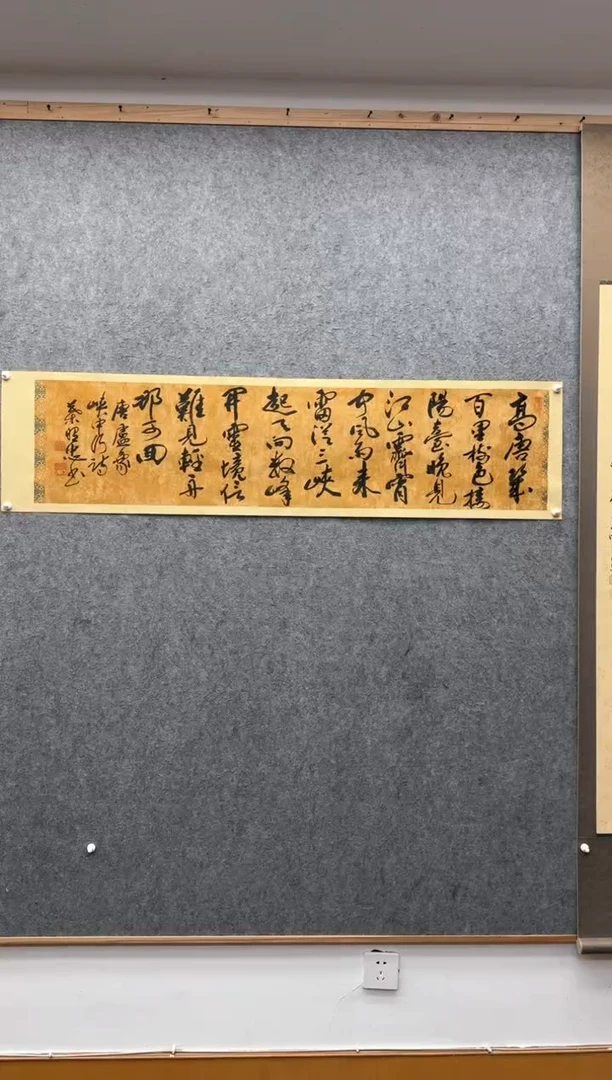 高唐幾
百里樹色接
陽臺晚見
江山霽宵
聞風雨来
雲從三峽
起天向数峰
開靈境信
難見輕舟
那可回
唐盧象
峽中作詩
蔡